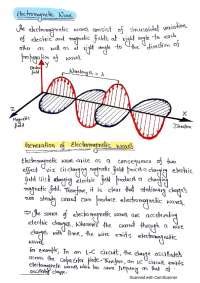 Electromagnetic Wave
An electromagnetic waves consist of sinusoidal variation
of electric and magnetic fields at right angle to each
other as well as at right angle to the direction of
propagation of waves.
Electric
field
Wavelength = λ
Z
Magnetic
field
X
Direction
Generation of Electromagnetic waves
Electromagnetic wave arise as a consequence of two
effect viz (i) changing magnetic field produce changing electric
field (ii) changing electric field produce a changing
magnetic field. Therefore, it is clear that stationary charges
nor steady current can produce electromagnetic waves.
→ The source of electromagnetic waves are accelerating
electric charges. Whenever the current through a wire
changes with time, the wire emits electromagnetic
waves.
for example, In an L-C circuit, the charge oscillates
across the capacitor plate. Therefore, an LC circuit emits
electromagnetic waves which has same frequency as that of
oscillating charge.
Scanned with CamScanner